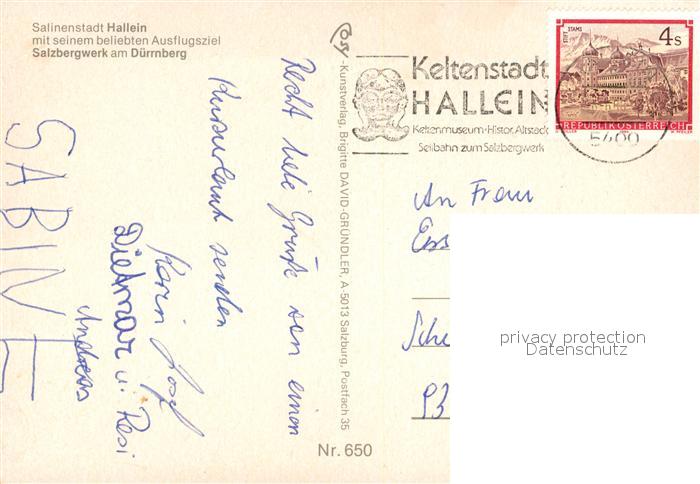 Salinenstadt Hallein
mit seinem beliebten Ausflugsziel
Salzbergwerk am Dürrnberg
Recht liebe Grüße von einem
Kurzurlaub senden
Karin Josef
Dietmar u. Resi
Andreas
SABINE
Rosy-Kunstverlag, Brigitte DAVID-GRÜNDLER, A-5013 Salzburg, Postfach 35
Nr. 650
Keltenstadt
HALLEIN
Keltenmuseum·Histor. Altstadt
Seilbahn zum Salzbergwerk
5400
STIFT STAMS
4s
REPUBLIK ÖSTERREICH
An Frau
Sche
93
privacy protection
Datenschutz